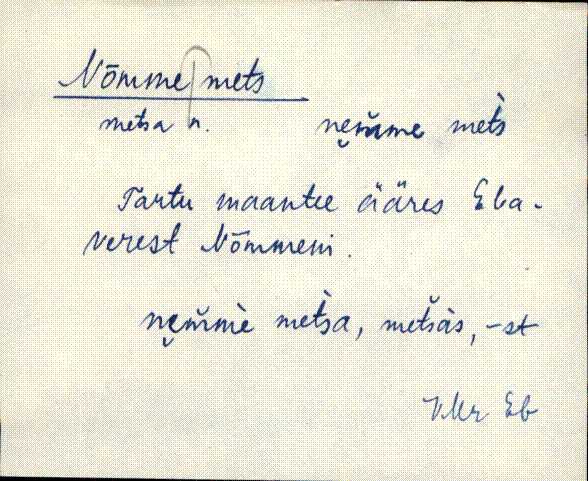 Nõmme mets
metsa n. nẹm̆me mets̀
Tartu maantee ääres Eba-
verest Nõmmeni.
nẹm̆mè mets̀a, metsàs, -st
VMr Eb